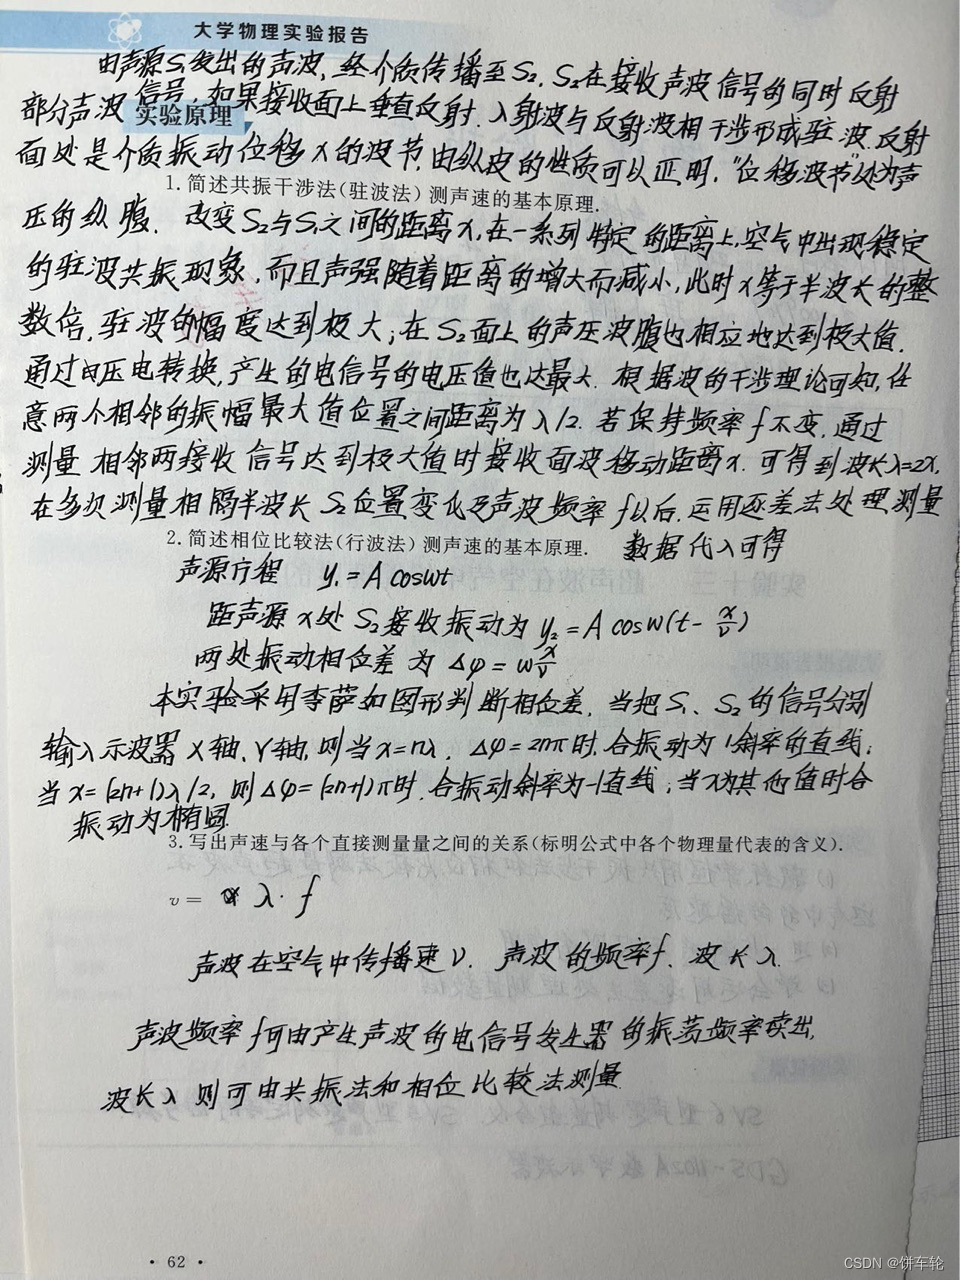 大学物理实验报告
由声源S₁发出的声波,经介质传播至S₂,S₂在接收声波信号的同时反射
部分声波信号,如果接收面上垂直反射.入射波与反射波相干涉形成驻波.反射
实验原理
面处是介质振动位移x的波节,由纵波的性质可以证明,"位移波节"处为声
1.简述共振干涉法(驻波法)测声速的基本原理.
压的纵腹. 改变S₂与S₁之间的距离x,在一系列特定的距离上,空气中出现稳定
的驻波共振现象,而且声强随着距离的增大而减小,此时x等于半波长的整
数倍,驻波的幅度达到极大;在S₂面上的声压波腹也相应地达到极大值.
通过 压电转换,产生的电信号的电压值也达最大. 根据波的干涉理论可知,任
意两个相邻的振幅最大值位置之间距离为λ/2.若保持频率f不变,通过
测量相邻两接收信号达到极大值时接收面波移动距离x.可得到波长λ=2x.
在多次测量相隔半波长S₂位置变化及声波频率f以后.运用逐差法处理测量
2.简述相位比较法(行波法)测声速的基本原理. 数据代入可得
声源方程 y₁=Acoswt
距声源x处S₂接收振动为y₂=Acosw(t-x/v)
两处振动相位差为Δφ=w x/v
本实验采用李萨如图形判断相位差. 当把S₁、S₂的信号分别
输入示波器X轴、Y轴,则当x=nλ, Δφ=2nπ时,合振动为1斜率的直线;
当x=(2n+1)λ/2, 则Δφ=(2n+1)π时.合振动斜率为-1直线;当x为其他值时合
振动为椭圆
3.写出声速与各个直接测量量之间的关系(标明公式中各个物理量代表的含义).
v= λ·f
声波在空气中传播速v. 声波的频率f、波长λ.
声波频率f可由产生声波的电信号发生器的振荡频率读出,
波长λ则可由共振法和相位比较法测量
· 62 ·
CSDN @饼车轮